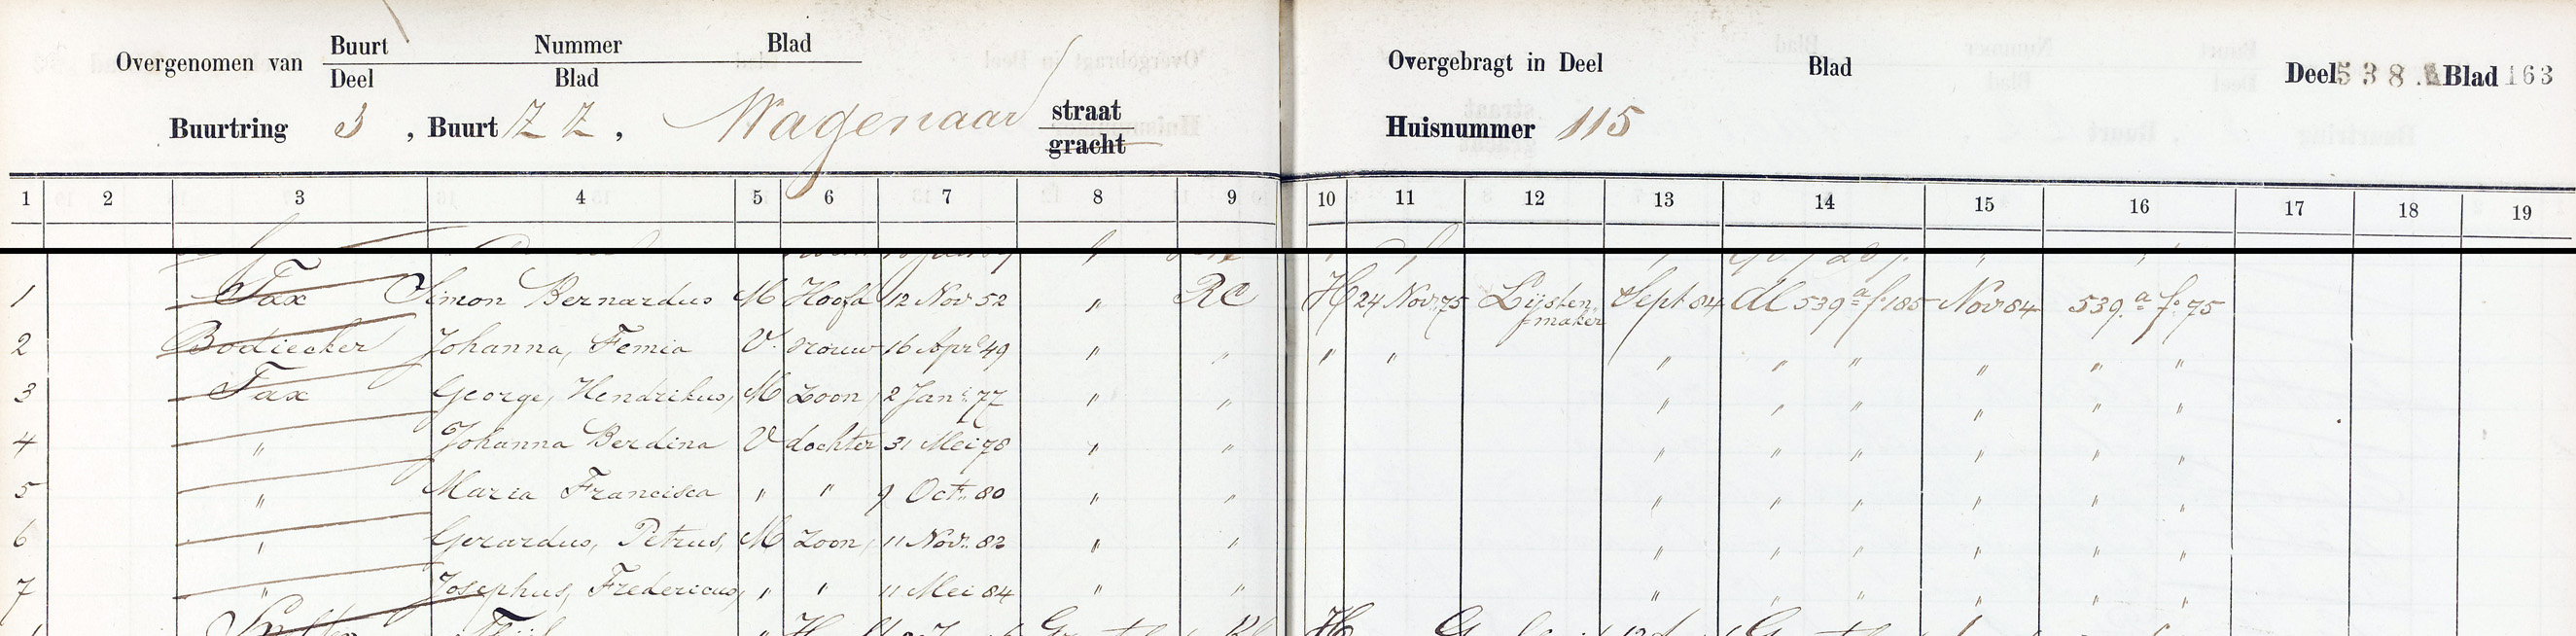 Overgenomen van Buurt Nummer Blad Overgebragt in Deel Blad Deel 538. Blad 163
Deel Blad
Buurtring 3, Buurt ZZ, Wagenaar straat Huisnummer 115
gracht
1 2 3 4 5 6 7 8 9 10 11 12 13 14 15 16 17 18 19
1 Tax Simon Bernardus M Hoofd 12 Nov 52 " RC H 24 Nov. 75 Lijsten- Sept 84 dl 539 a f. 185 Nov 84 539. a f. 75
maker
2 Bodiecker Johanna, Femia V. vrouw 16 Apr 49 " " " " " " " " " "
3 Tax George, Hendrikus, M Zoon 2 Jan. 77 " " " " " " " "
4 " Johanna Berdina V dochter 31 Mei 78 " " " " " " " "
5 " Maria Francisca " " 9 Oct. 80 " " " " " " " "
6 " Gerardus, Petrus, M Zoon 11 Nov. 82 " " " " " " " "
7 " Josephus, Fredericus, " " 11 Mei 84 " " " " " " " "